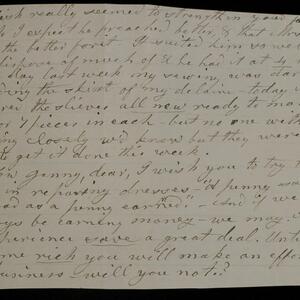 really seemed to strengthen your
I expect he preached better, & that
the better for it. It suited him so we
dispose of much of & he has it at
day last week my sewing, was
the skirt of my delaine - today
the sleeves all new ready to
or 7 pieces in each - but no one
closely w'd know but they were
to get it done this week.
Genny, dear, I wish you to try
in repairing dresses - "A penny
as a penny earned". - And if we
be earning money - we may
experience save a great deal. Until
rich you will make an effo
business will you not?